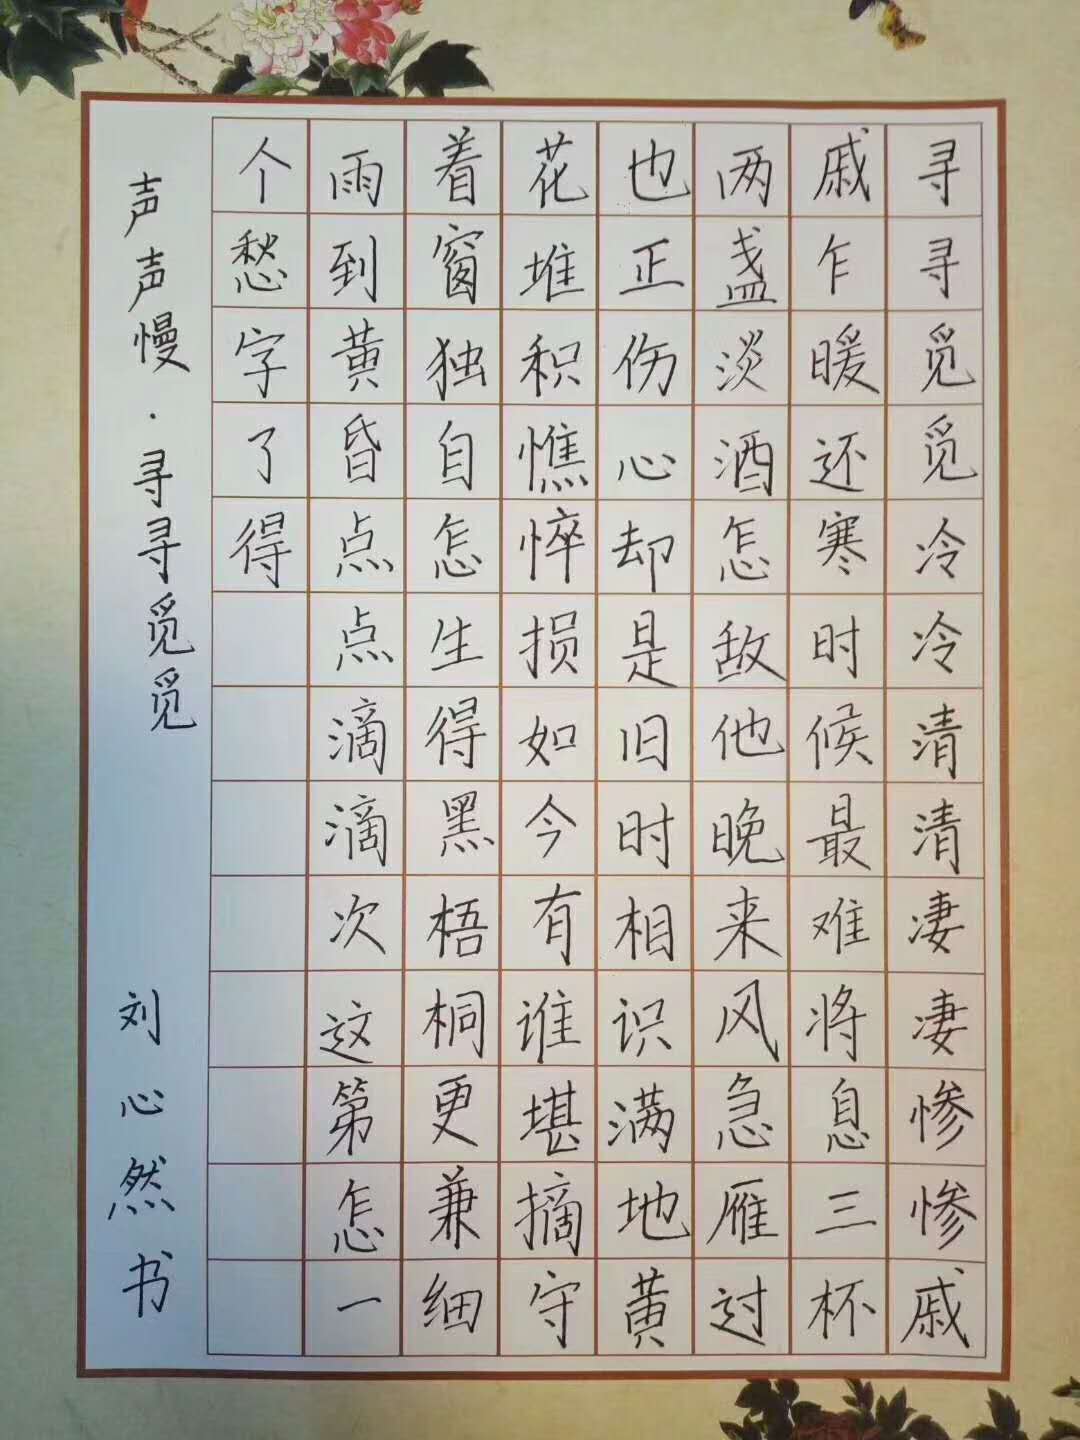 寻寻觅觅冷冷清清凄凄惨惨戚
戚乍暖还寒时候最难将息三杯
两盏淡酒怎敌他晚来风急雁过
也正伤心却是旧时相识满地黄
花堆积憔悴损如今有谁堪摘守
着窗独自怎生得黑梧桐更兼细
雨到黄昏点点滴滴次这第怎一
个愁字了得
声声慢·寻寻觅觅
刘心然书